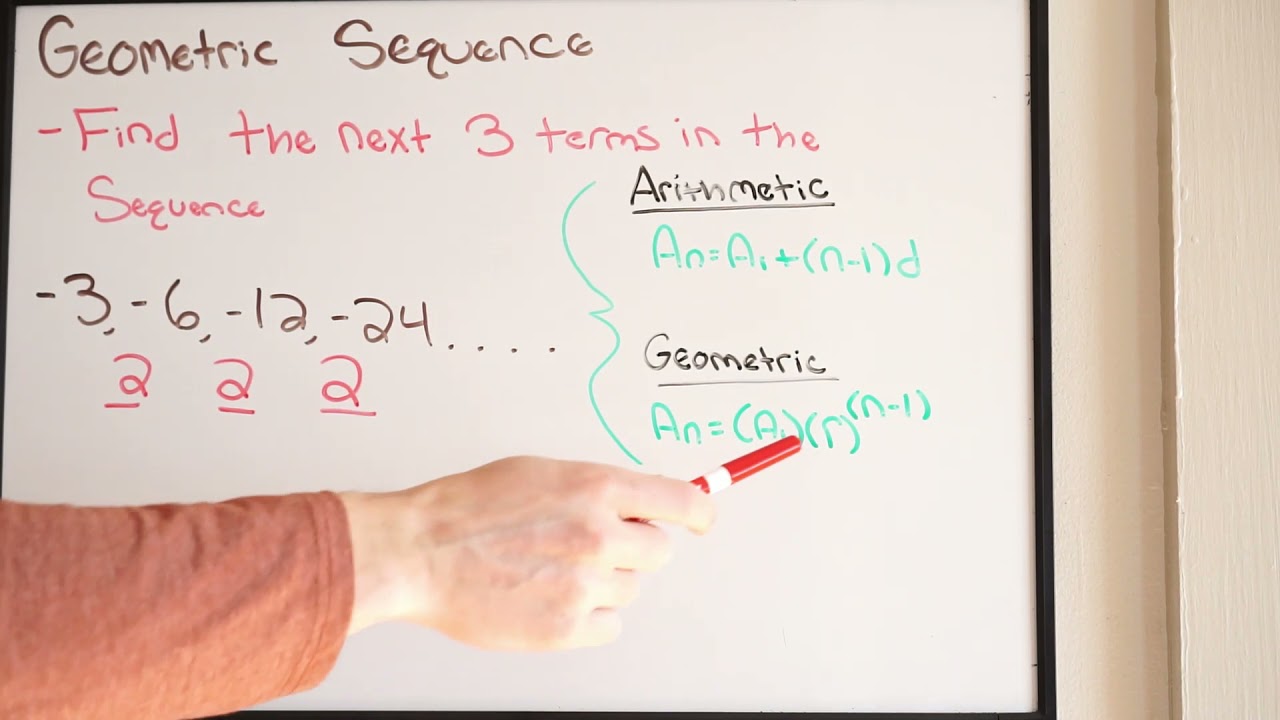 Geometric Sequence
- Find the next 3 terms in the
Sequence
-3, -6, -12, -24 . . . .
2 2 2
Arithmetic
An = A1 + (n-1)d
Geometric
An = (A1)(r)^(n-1)